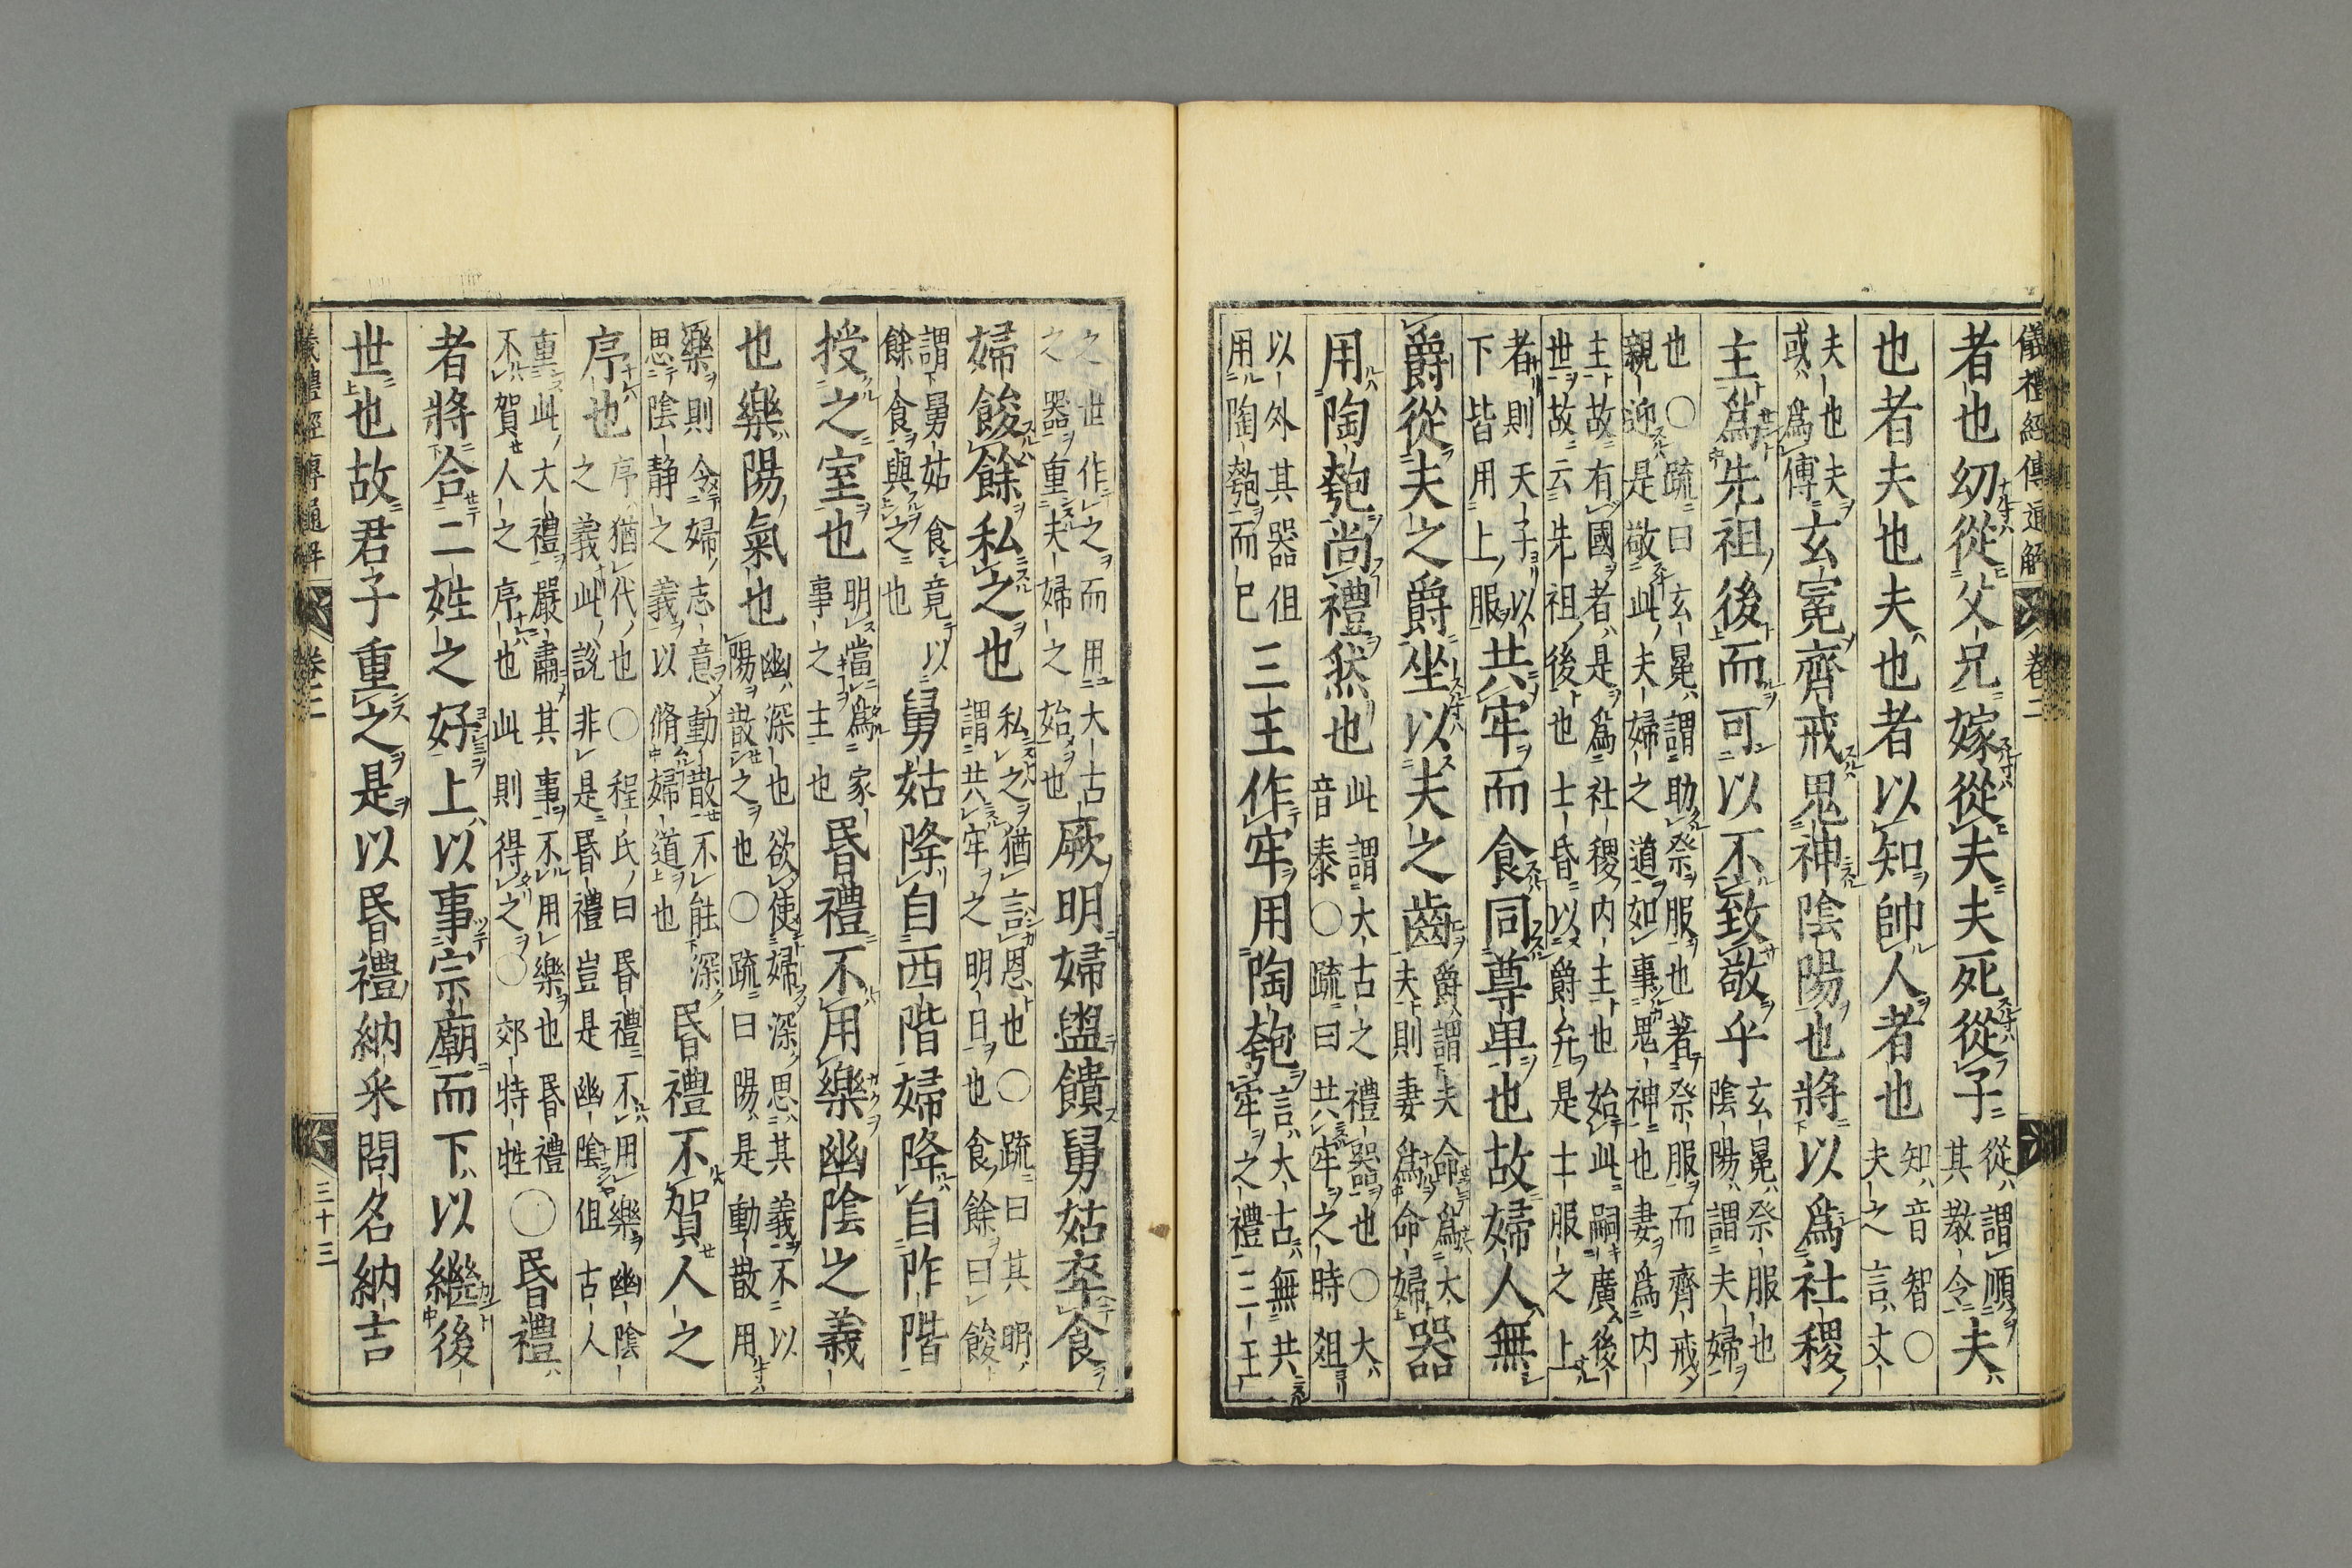 儀禮經傳通解 卷二
者也幼從父兄嫁從夫夫死從子從謂順其教令夫
也者夫也夫也者以知帥人者也知音智〇夫之言丈
夫也夫或爲傅玄冕齊戒鬼神陰陽也將以爲社稷
主爲先祖後而可以不致敬乎玄冕祭服也陰陽謂夫婦
也〇疏曰玄冕謂助祭服也著祭服而齊戒
親迎是敬此夫婦之道如事鬼神也妻爲內
主故有國者是爲社稷內主也始此嗣廣後
世故云先祖後也士昏以爵弁是士服之上
者則天子以下皆用上服共牢而食同尊卑也故婦人無
爵從夫之爵坐以夫之齒爵謂夫命爲大夫則妻爲命婦器
用陶匏尚禮然也此謂大古之禮器也〇大音泰〇疏曰共牢之時俎
以外其器但用陶匏而已三王作牢用陶匏言大古無共牢之禮三王
之世作之而用大古之器重夫婦之始也厥明婦盥饋舅姑卒食
婦餕餘私之也私之猶言恩也〇疏曰其明謂共牢之明日也食餘曰餕
謂舅姑食竟以餘食與之也舅姑降自西階婦降自阼階
授之室也明當爲家事之主也昏禮不用樂幽陰之義
也樂陽氣也幽深也欲使婦深思其義不以陽散之也〇疏曰陽是動散用
樂則令婦志意動散不能深思陰靜之義以脩婦道也昏禮不賀人之
序也序猶代也〇程氏曰昏禮不用樂幽陰之義此說非是昏禮豈是幽陰但古人
重此大禮嚴肅其事不用樂也昏禮不賀人之序也此則得之〇郊特牲〇昏禮
者將合二姓之好上以事宗廟而下以繼後
世也故君子重之是以昏禮納采問名納吉
儀禮經傳通解 卷二 三十三